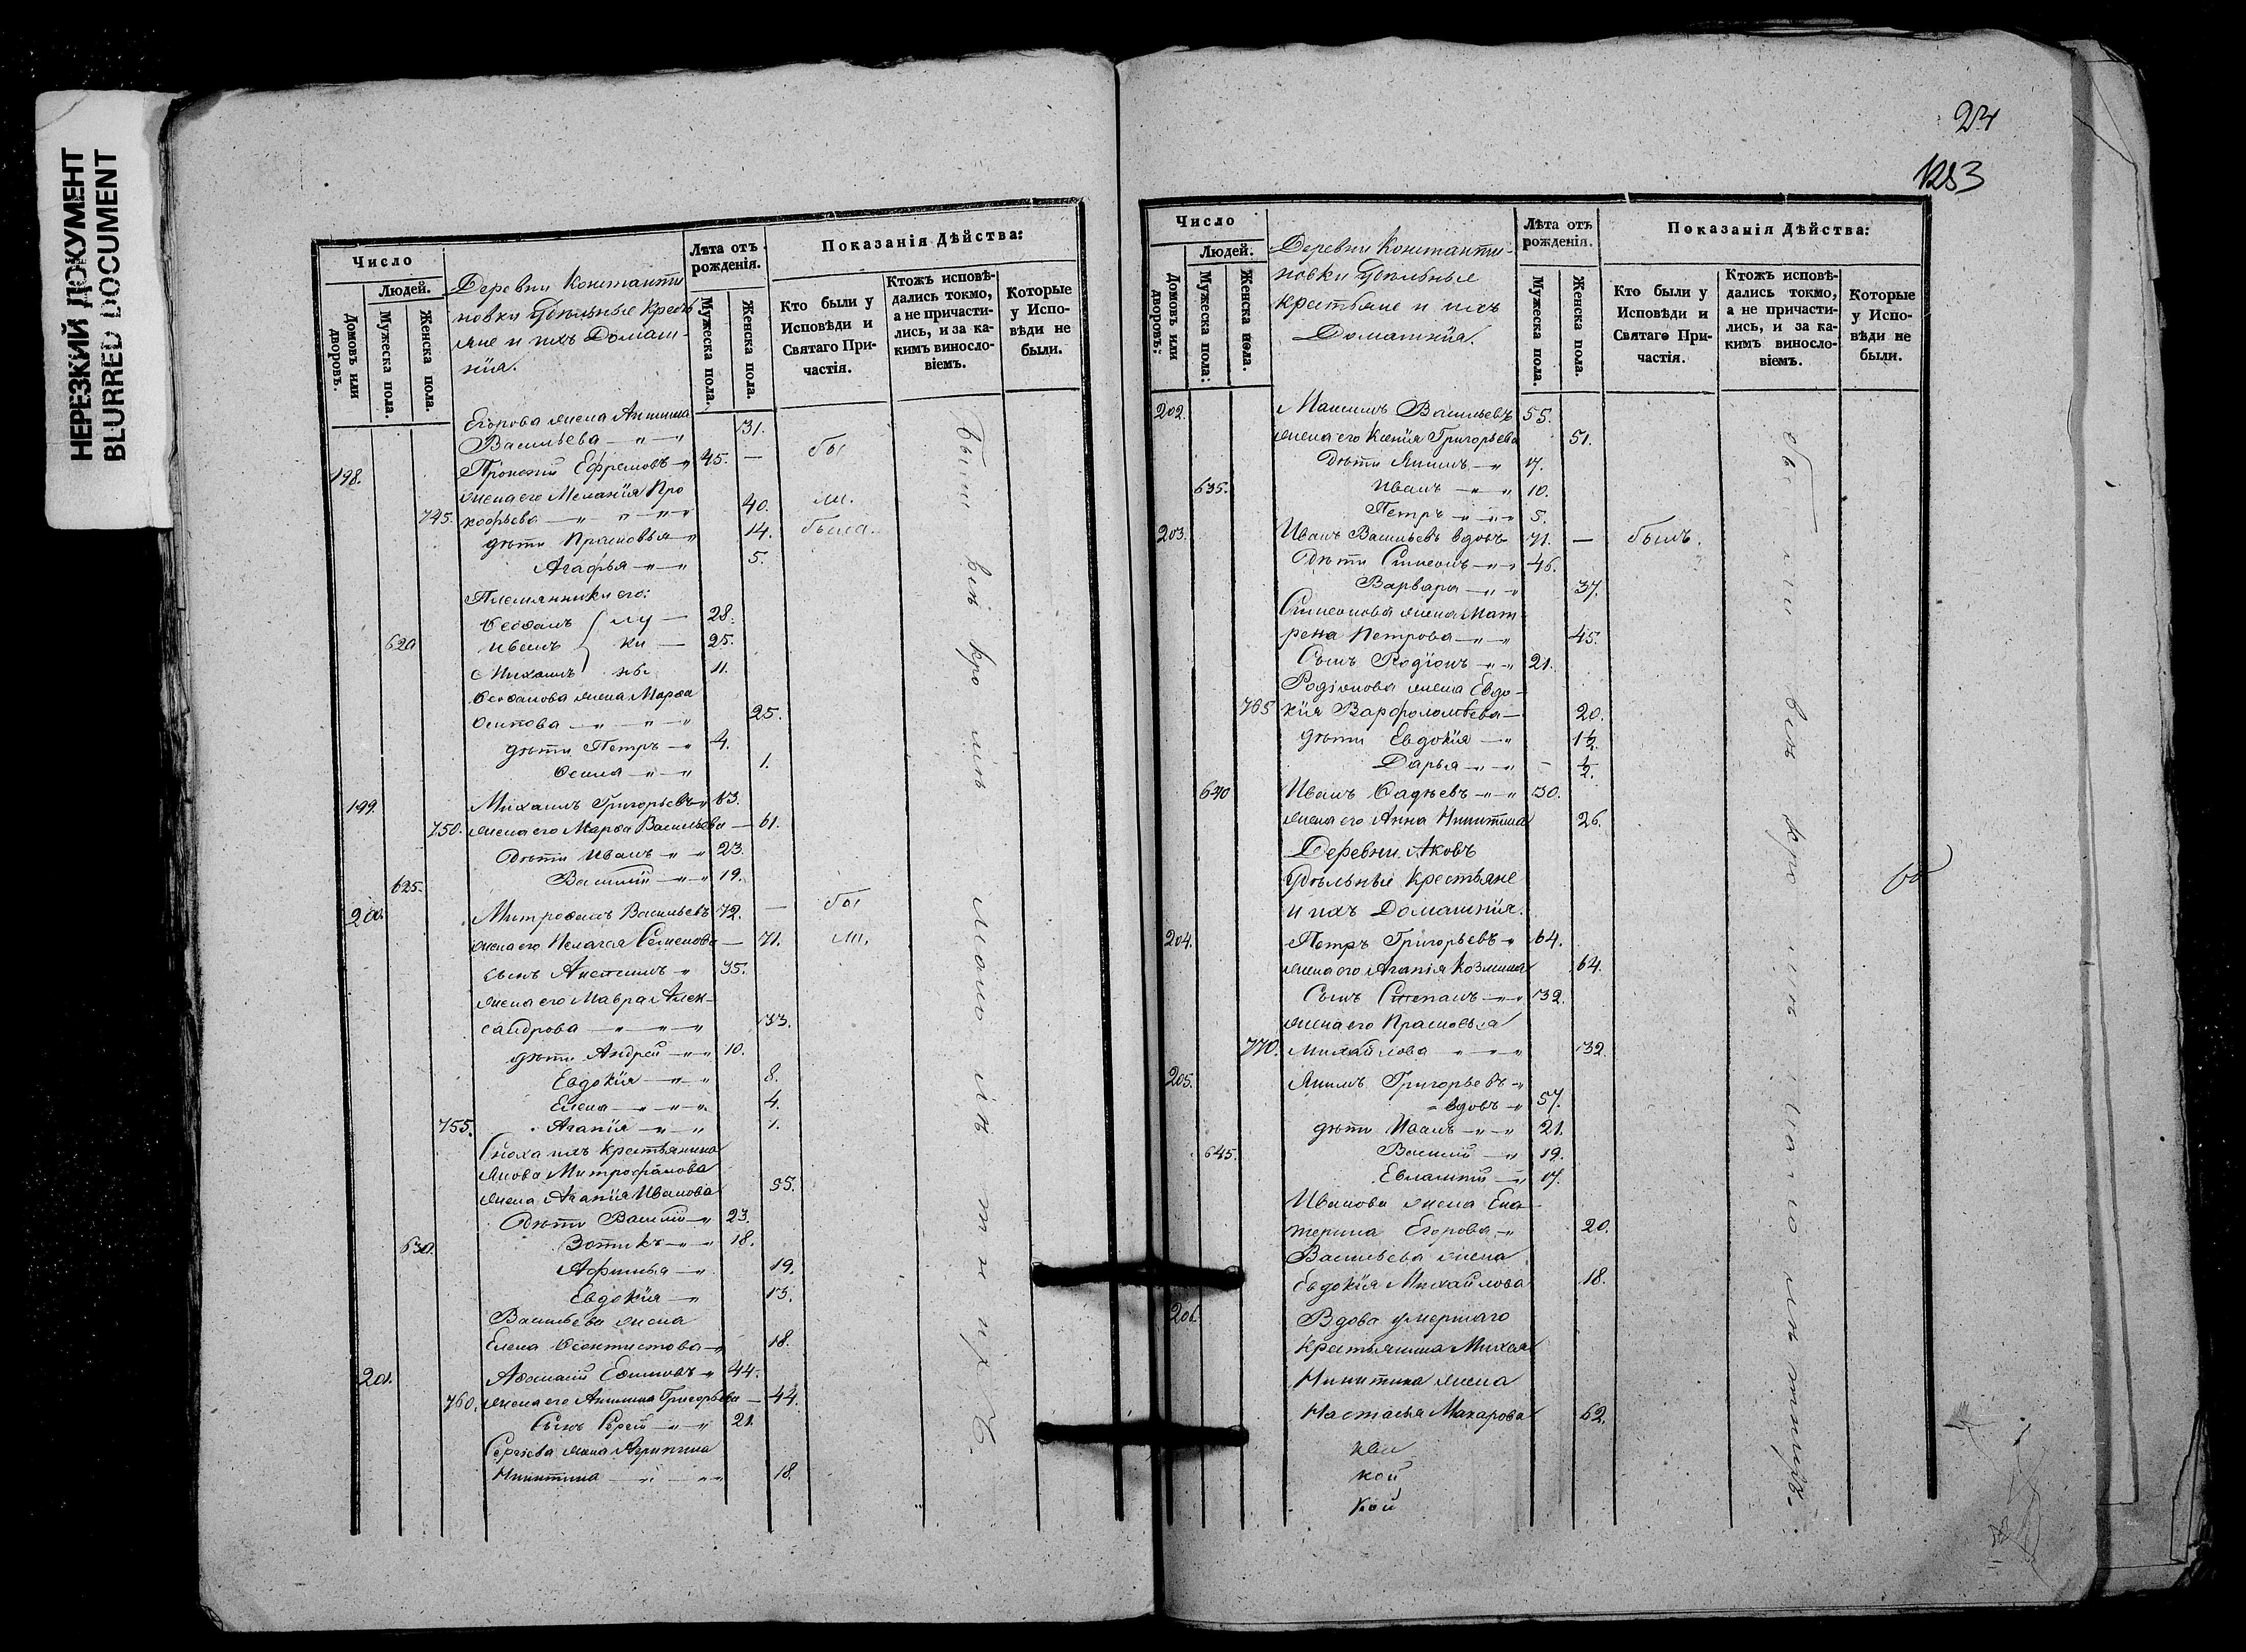 НЕРЕЗКИЙ ДОКУМЕНТ
BLURRED DOCUMENT
Число
Людей.
Домовъ или дворовъ.
Мужеска пола.
Женска пола.
Деревни Константи
новки Удѣльные Кресть
яне и ихъ Домаш-
нія.
Лѣта отъ рожденія.
Мужеска пола.
Женска пола.
Показанія Дѣйства:
Кто были у Исповѣди и Святаго Причастія.
Ктожъ исповѣдались токмо, а не причастились, и за какимъ винословіемъ.
Которые у Исповѣди не были.
Егорова жена Акилина
Васильева 31.
198. Прокопій Ефремовъ 45. — бы
жена его Меланія Про
745. кофьева 40. ли.
дѣти Прасковья 14. была.
Агафья 5.
Племянники его:
Ѳеофанъ 28.
620 Иванъ 25.
Михаилъ 11.
Ѳеофанова жена Марѳа
Осипова 25.
дѣти Петръ 4.
1.
199. Михаилъ Григорьевъ 63.
750. жена его Марѳа Васильева — 61.
Дѣти Иванъ 23.
625. Василій 19.
200. Митрофанъ Васильевъ 72. — бы
жена его Пелагея Семенова — 71. ли.
сынъ 35.
жена его Мавра Алек-
сандрова 33.
дѣти Андрей 10.
Евдокія 8.
Елена 4.
755. Агапія 1.
Сноха ихъ крестьянина
Якова Митрофанова
жена Агапія Иванова 55.
Дѣти Василій 23.
630. Зотикъ 18.
Афимья 19.
Евдокія 13.
Васильева жена
Елена Ѳеоктистова 18.
201. Аѳонасій Ефимовъ 44.
760. жена его Акилина Григорьева — 44.
Сынъ Сергѣй 21.
Сергѣева жена Агрипина
Никитина 18.
Были всѣ кромѣ малолѣтнихъ.
24
1283
Число
Людей.
Домовъ или дворовъ:
Мужеска пола:
Женска пола.
Деревни Константи-
новки Удѣльные
крестьяне и ихъ
Домашнія.
Лѣта отъ рожденія.
Мужеска пола.
Женска пола.
Показанія Дѣйства:
Кто были у Исповѣди и Святаго Причастія.
Ктожъ исповѣдались токмо, а не причастились, и за какимъ винословіемъ.
Которые у Исповѣди не были.
202. Васильевъ 55.
жена его Ксенія Григорьева 51.
Дѣти Якимъ 17.
635. Иванъ 10.
Петръ 5.
203. Иванъ Васильевъ вдовъ 71. — былъ.
Дѣти Симеонъ 46.
Варвара 37.
Симеонова жена Мат
рена Петрова 45.
Сынъ Родіонъ 21.
Родіонова жена Евдо-
765 кія Варфоломѣева 20.
дѣти Евдокія 1½.
Дарья ½.
640 Иванъ Ѳадѣевъ 30.
жена его Анна Никитина 26.
Деревни Аковъ
Удѣльные Крестьяне
и ихъ Домашнія.
204. Петръ Григорьевъ 64.
жена его Агапія Козмина 64.
Сынъ Степанъ 32.
жена его Прасковья
770. Михайлова 32.
205. Якимъ Григорьевъ
вдовъ 57.
дѣти Иванъ 21.
645. Василій 19.
Евлампій 17.
Иванова жена Ека
терина Егорова 20.
Васильева жена
Евдокія Михайлова 18.
206. Вдова умершаго
Крестьянина Михаила
Никитина жена
Настасья Макарова 62.
кой
кой
были всѣ кромѣ малолѣтнихъ.